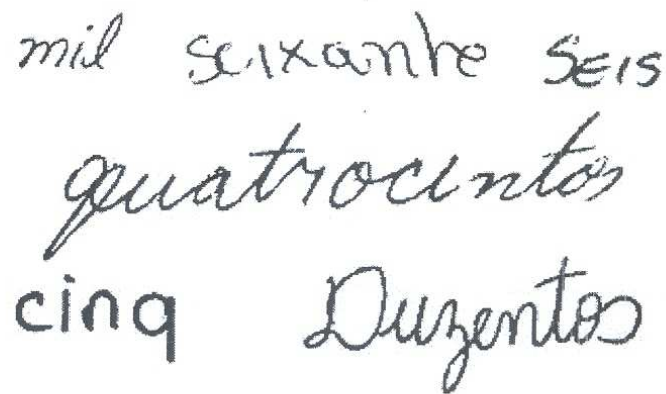 mil seixante SEIS
quatrocentos
cinq Duzentos